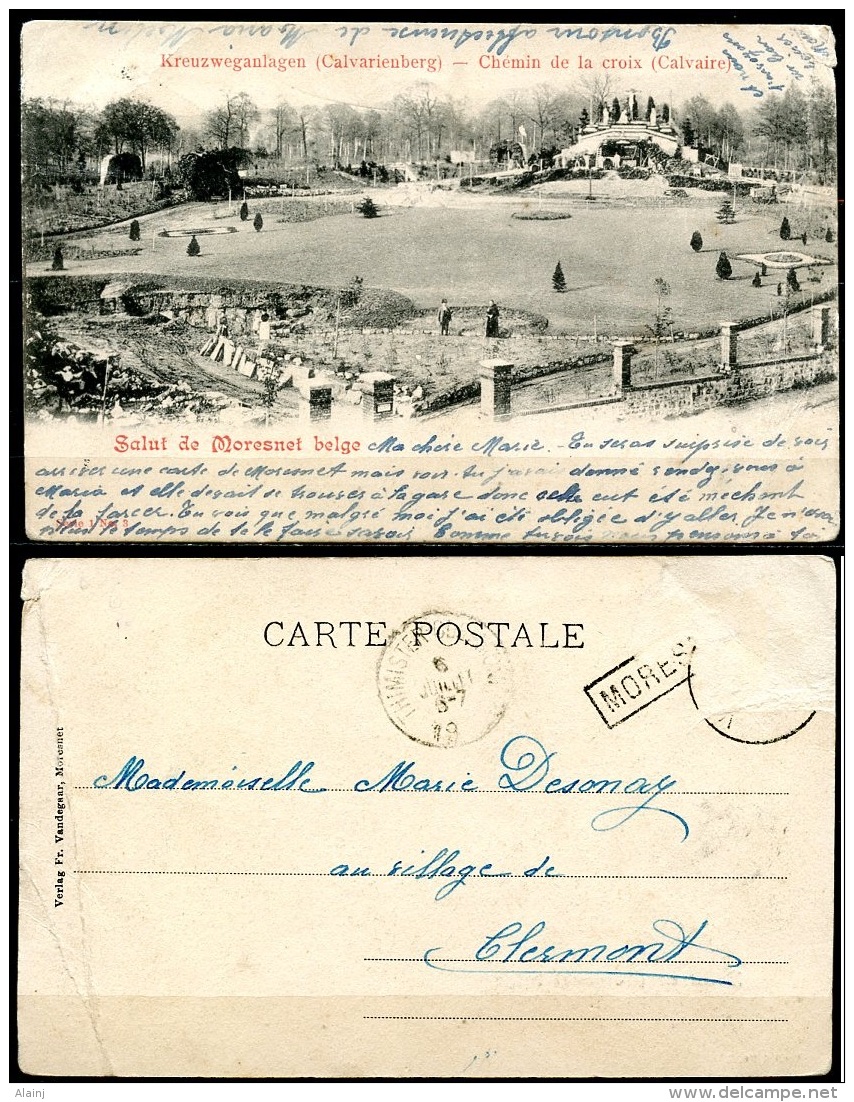 Bonjour affectueuse de Maria
Kreuzweganlagen (Calvarienberg) — Chémin de la croix (Calvaire)
Salut de Moresnet belge Ma chère Marie. Tu seras surprise de voir
arriver une carte de Moresnet mais voir. tu j'avais donné rendez-vous à
Maria et elle devait se trouver à la gare donc cut été méchant
de la farcer. Tu vois que malgré moi j'ai été obligée d'y aller. Je n'avai
plus le temps de te le faire savoir. Comme tu vois nous pensons à ta
Serie 1 No. 3
CARTE POSTALE
THIMISTER
6
JUILLET
6-7
19
MORES
Verlag Fr. Vandegaar, Moresnet
Mademoiselle Marie Desonay
au village de
Clermont
Alainj
www.delcampe.net